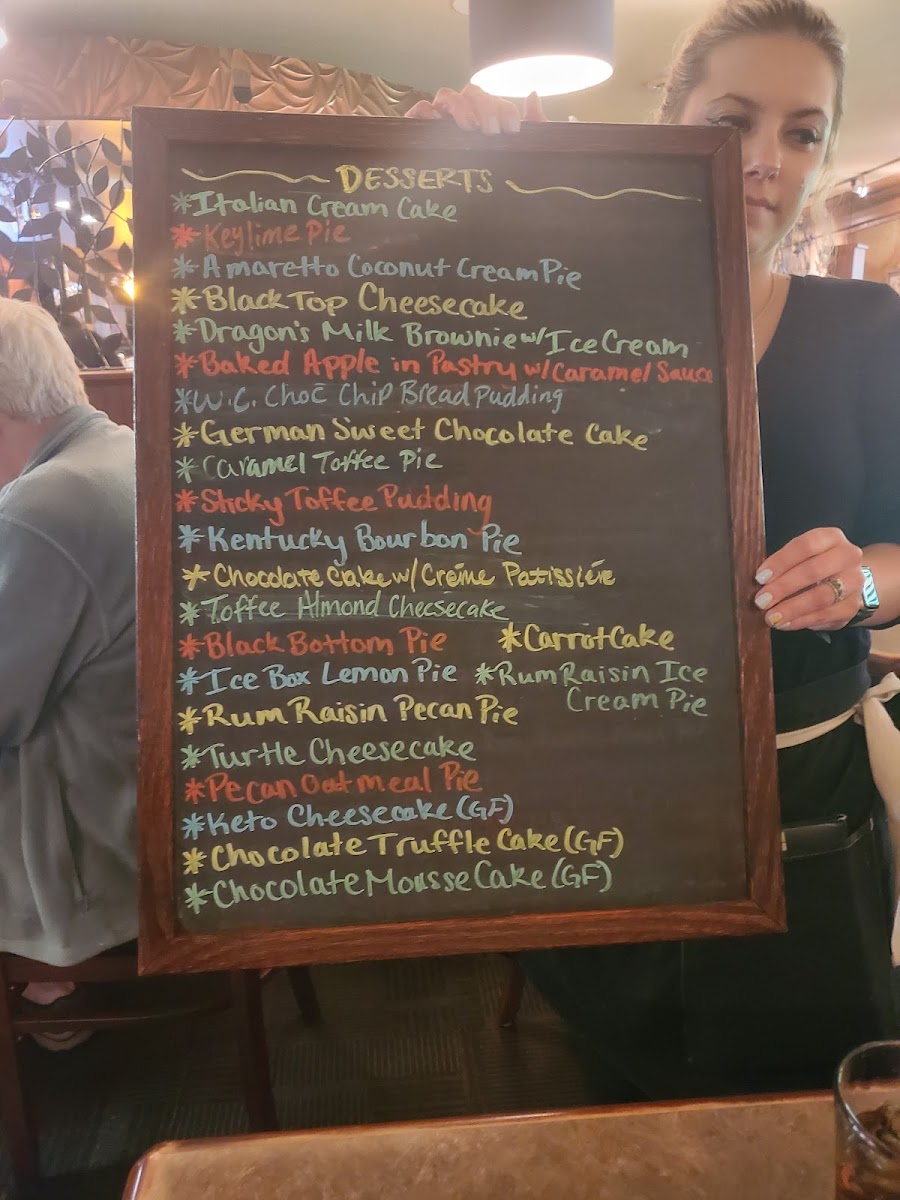 DESSERTS
*Italian Cream Cake
*Keylime Pie
*Amaretto Coconut Cream Pie
*Black Top Cheesecake
*Dragon's Milk Brownie w/ Ice Cream
*Baked Apple in Pastry w/ Caramel Sauce
*W.C. Choc Chip Bread Pudding
*German Sweet Chocolate Cake
*Caramel Toffee Pie
*Sticky Toffee Pudding
*Kentucky Bourbon Pie
*Chocolate Cake w/ Créme Patissiére
*Toffee Almond Cheesecake
*Black Bottom Pie
*Carrot Cake
*Ice Box Lemon Pie
*Rum Raisin Ice
Cream Pie
*Rum Raisin Pecan Pie
*Turtle Cheesecake
*Pecan Oatmeal Pie
*Keto Cheesecake (GF)
*Chocolate Truffle Cake (GF)
*Chocolate Mousse Cake (GF)